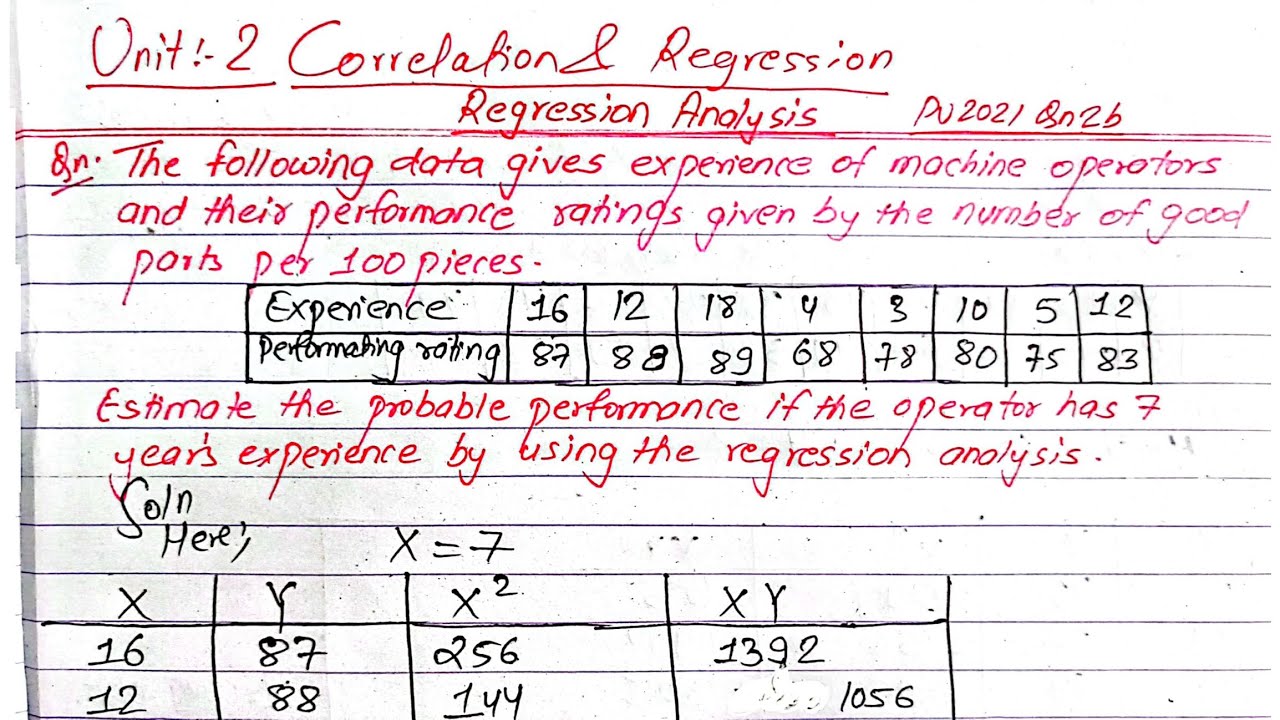 Unit:- 2 Correlation & Regression
Regression Analysis PU2021 Qn2b
Qn. The following data gives experience of machine operators
and their performance ratings given by the number of good
parts per 100 pieces.
Experience 16 12 18 4 3 10 5 12
Performating rating 87 88 89 68 78 80 75 83
Estimate the probable performance if the operator has 7
year's experience by using the regression analysis.
Soln
Here; X = 7
X Y X² XY
16 87 256 1392
12 88 144 1056